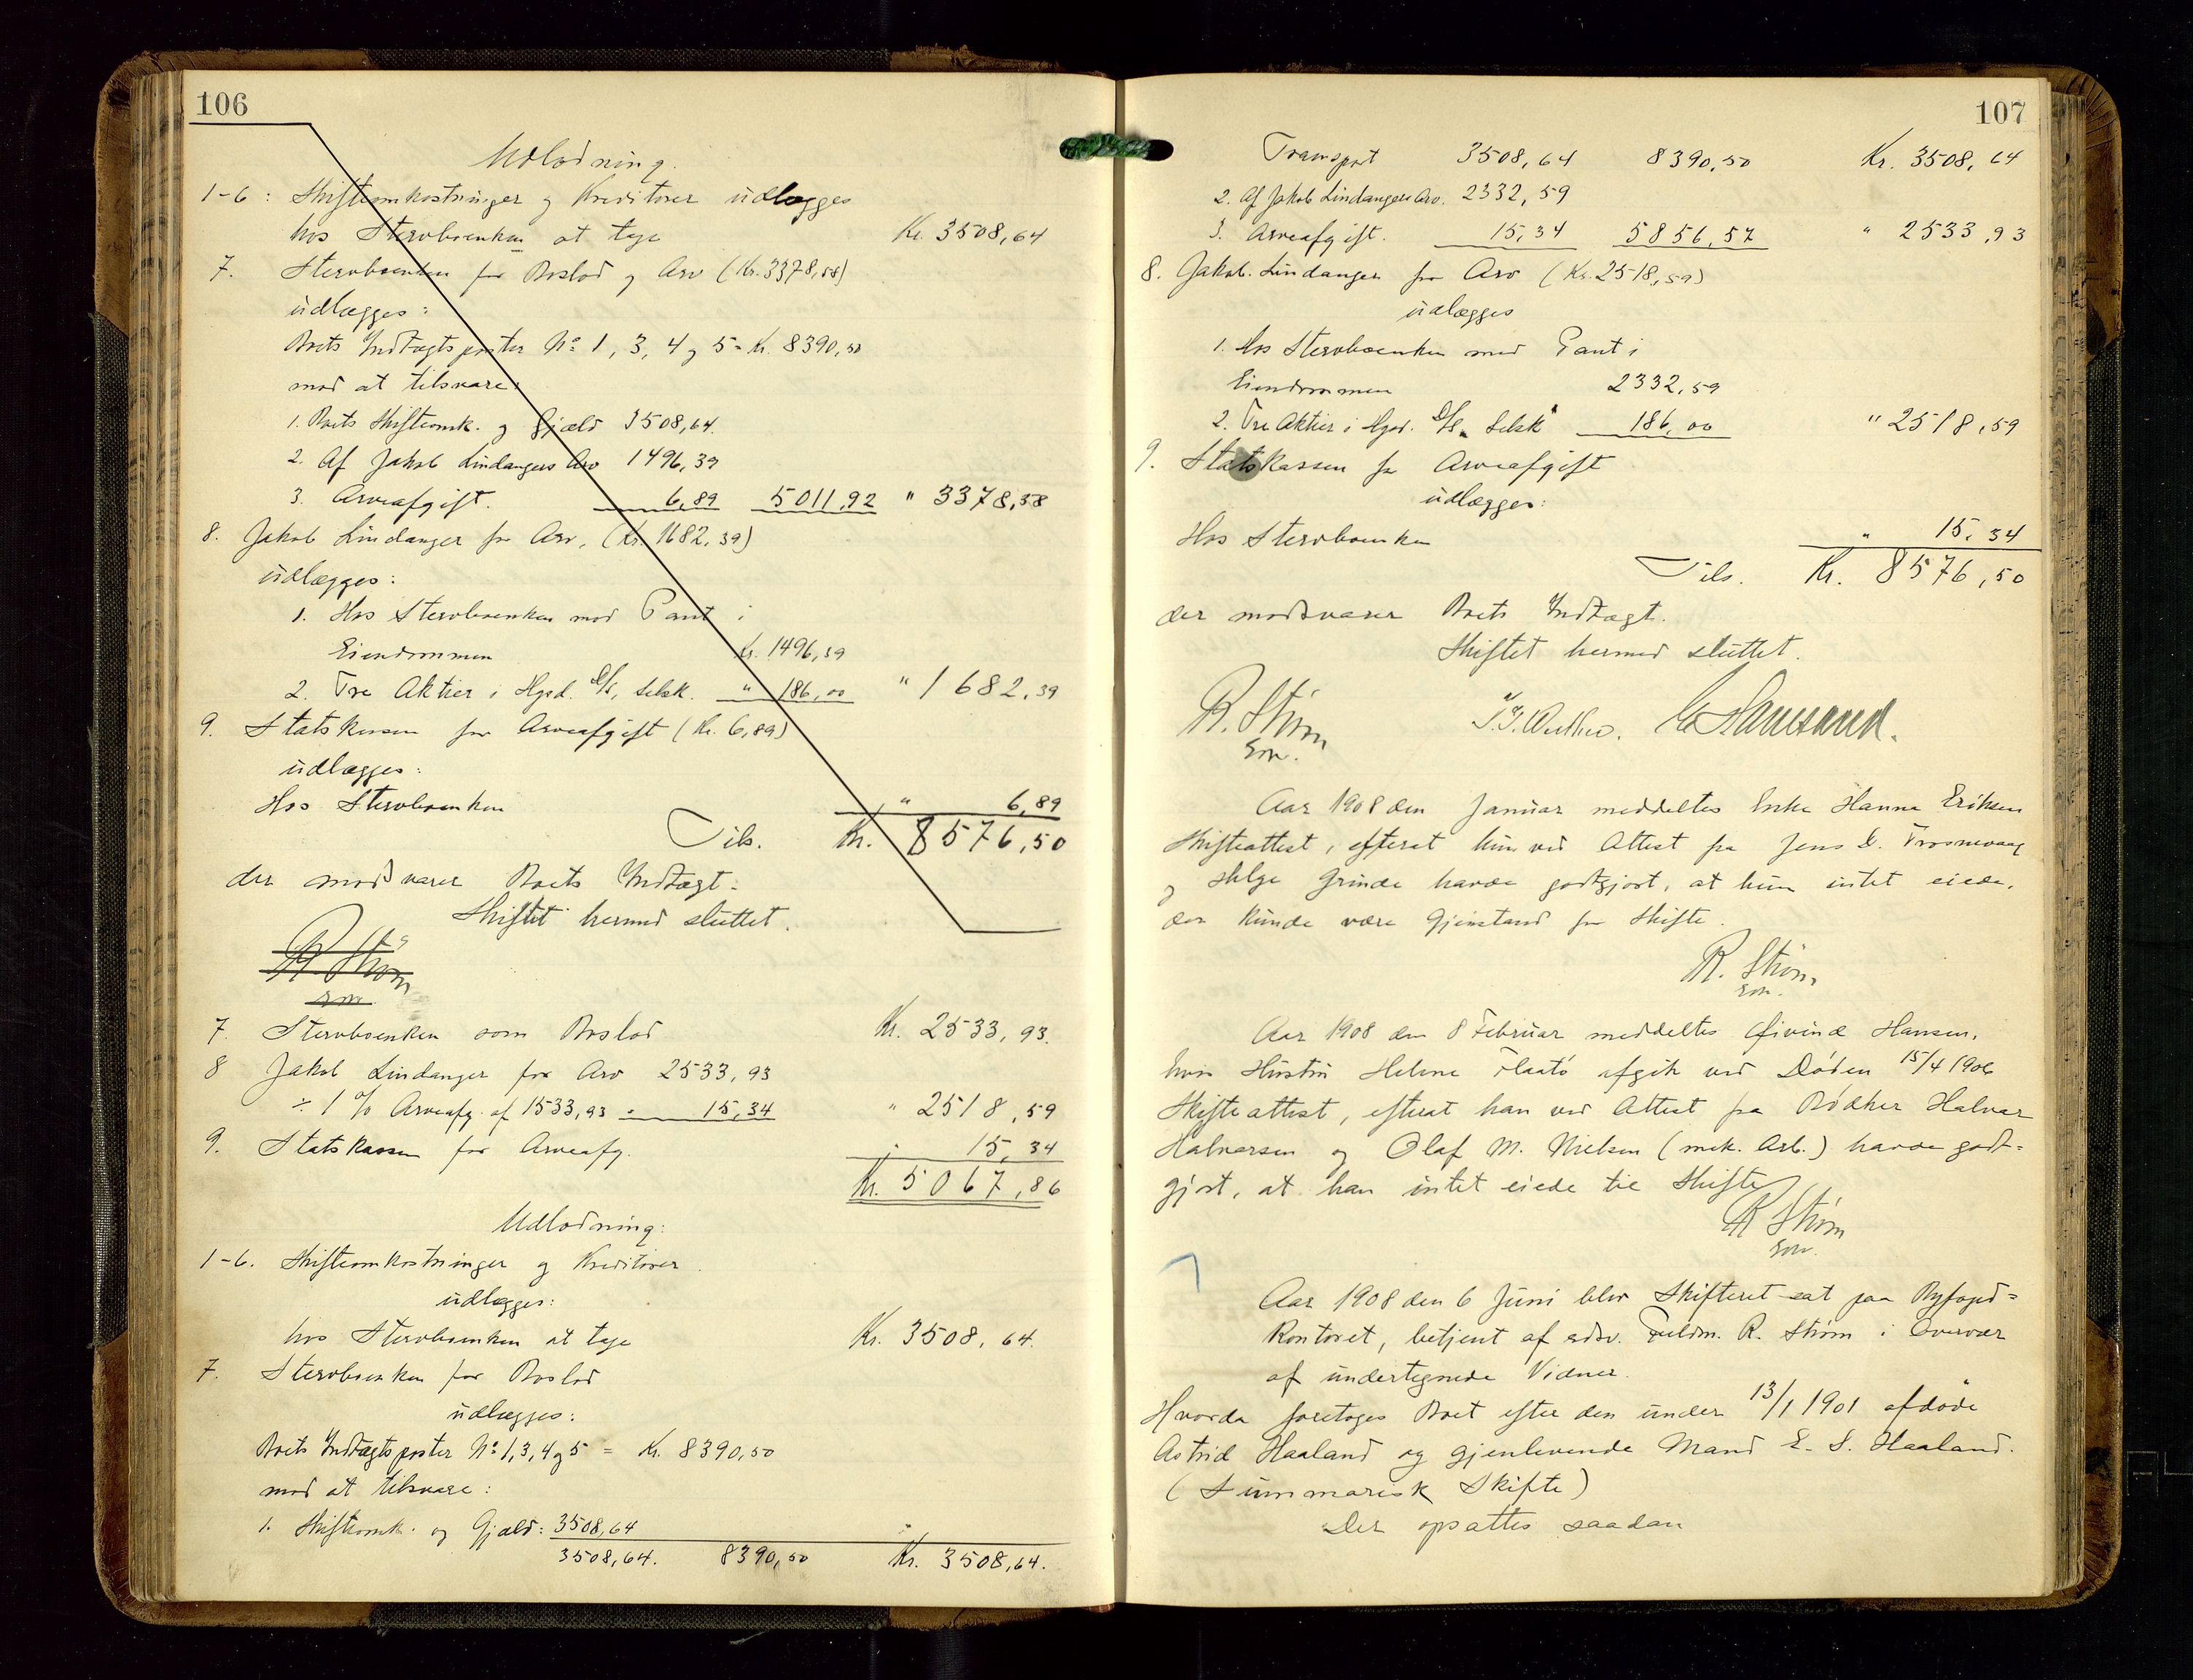 106
Udlodning.
1-6: Skifteomkostninger og Kreditorer udlægges
hos Stervboenken at tage Kr. 3508,64
7. Stervboenken for Boslod og Arv (Kr. 3378,58)
udlægges:
Boets Indtægtsposter No 1, 3, 4 og 5 = Kr. 8390,50
mod at tilsvare:
1. Boets Skifteomk. og Gjæld 3508,64.
2. Af Jakob Lindangers Arv 1496,39
3. Arveafgift. 6,89 5011,92 " 3378,58
8. Jakob Lindanger for Arv, (Kr. 1682,39)
udlægges:
1. Hos Stervboenken mod Pant i
Eiendommen Kr. 1496,39
2. Tre Aktier i Hgsd. D/S. Selsk. " 186,00 " 1682,39
9. Statskassen for Arveafgift (Kr. 6,89)
udlægges:
Hos Stervboenken " 6,89
Tils. Kr. 8576,50
der modsvarer Boets Indtægt.
Skiftet hermed sluttet.
R. Strøm
con.
7. Stervboenken som Boslod Kr. 2533,93.
8 Jakob Lindanger for Arv 2533,93
÷ 1 % Arveafg. af 1533,93 = 15,34 " 2518,59
9. Statskassen for Arveafg. " 15,34
Kr. 5067,86
Udlodning:
1-6. Skifteomkostninger og Kreditorer
udlægges:
hos Stervboenken at tage Kr. 3508,64.
7. Stervboenken for Boslod
udlægges:
Boets Indtægtsposter No 1,3,4 og 5 = Kr. 8390,50
mod at tilsvare:
1. Skifteomk. og Gjæld: 3508,64
3508,64. 8390,50 Kr. 3508,64.
107
Transport 3508,64 8390,50 Kr. 3508,64
2. Af Jakob Lindangers Arv. 2332,59
3. Arveafgift. 15,34 5856,57 " 2533,93
8. Jakob Lindanger for Arv (Kr. 2518,59)
udlægges
1. Hos Stervboenken mod Pant i
Eiendommen 2332,59
2. Tre Aktier i Hgsd. D/S. Selsk 186,00 " 2518,59
9. Statskassen for Arveafgift
udlægges:
Hos Stervboenken " 15,34
Tils. Kr. 8576,50
der modsvarer Boets Indtægt.
Skiftet hermed sluttet.
R. Strøm
con.
Aar 1908 den Januar meddeltes Enke Hanna Eriksen
Skifteattest, efterat hun ved Attest fra Jens D. Trosnevaag
og Helge Grinde havde godtgjort, at hun intet eiede,
der kunde være Gjenstand for Skifte.
R. Strøm
con.
Aar 1908 den 8 Februar meddeltes Øivind Hansen,
hvis Hustru Helene Flaatø afgik ved Døden 15/4 1906
Skifteattest, efterat han ved Attest fra Bødker Halvor
Halvorsen og Olaf M. Nielsen (mek. Arb.) havde godt=
gjort, at han intet eiede til Skifte
R Strøm
con.
Aar 1908 den 6 Juni blev Skifteret sat paa Byfoged=
kontoret, betjent af edsv. Fuldm. R. Strøm i Overvær
af undertegnede Vidner.
Hvorda foretoges Boet efter den under 13/1 1901 afdøde
Astrid Haaland og gjenlevende Mand E. S. Haaland.
(Summarisk Skifte)
Der opsattes saadan